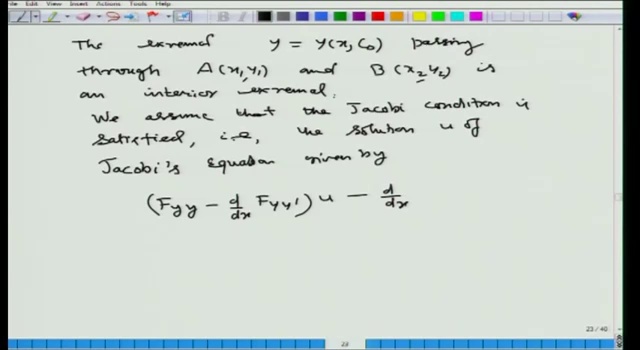 Edit View Insert Actions Tools Help
The extremal y = y(x, c₀) passing
through A(x₁, y₁) and B(x₂ y₂) is
an interior extremal.
We assume that the Jacobi condition is
satisfied, i.e, the solution u of
Jacobi's Equation given by
(Fyy − d/dx Fyy') u − d/dx
23 / 40
23